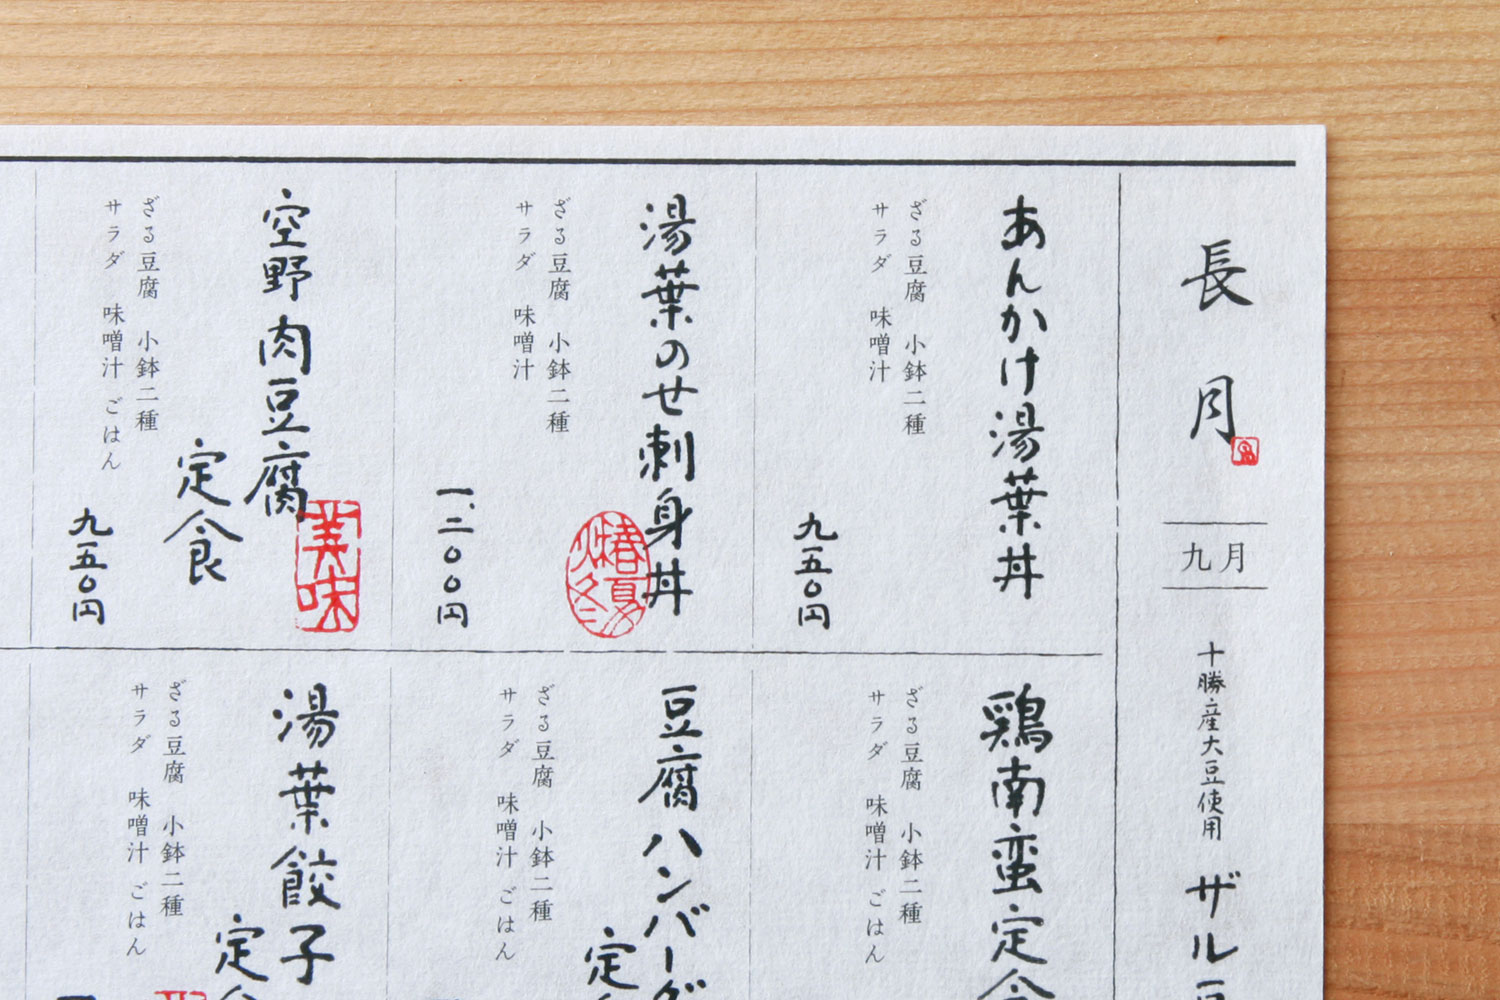 長月
九月
十勝産大豆使用
ザル豆
あんかけ湯葉丼
ざる豆腐 小鉢二種
サラダ 味噌汁
九五〇円
湯葉のせ刺身丼
春夏
秋冬
ざる豆腐 小鉢二種
サラダ 味噌汁
一、二〇〇円
空野肉豆腐
定食
美味
ざる豆腐 小鉢二種
サラダ 味噌汁 ごはん
九五〇円
鶏南蛮定食
ざる豆腐 小鉢二種
サラダ 味噌汁 ごはん
豆腐ハンバーグ
定食
ざる豆腐 小鉢二種
サラダ 味噌汁 ごはん
湯葉餃子
定食
ざる豆腐 小鉢二種
サラダ 味噌汁 ごはん